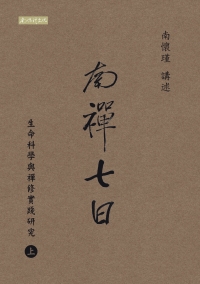 南懷瑾 講述
南禪七日
生命科學與禪修實踐研究
上